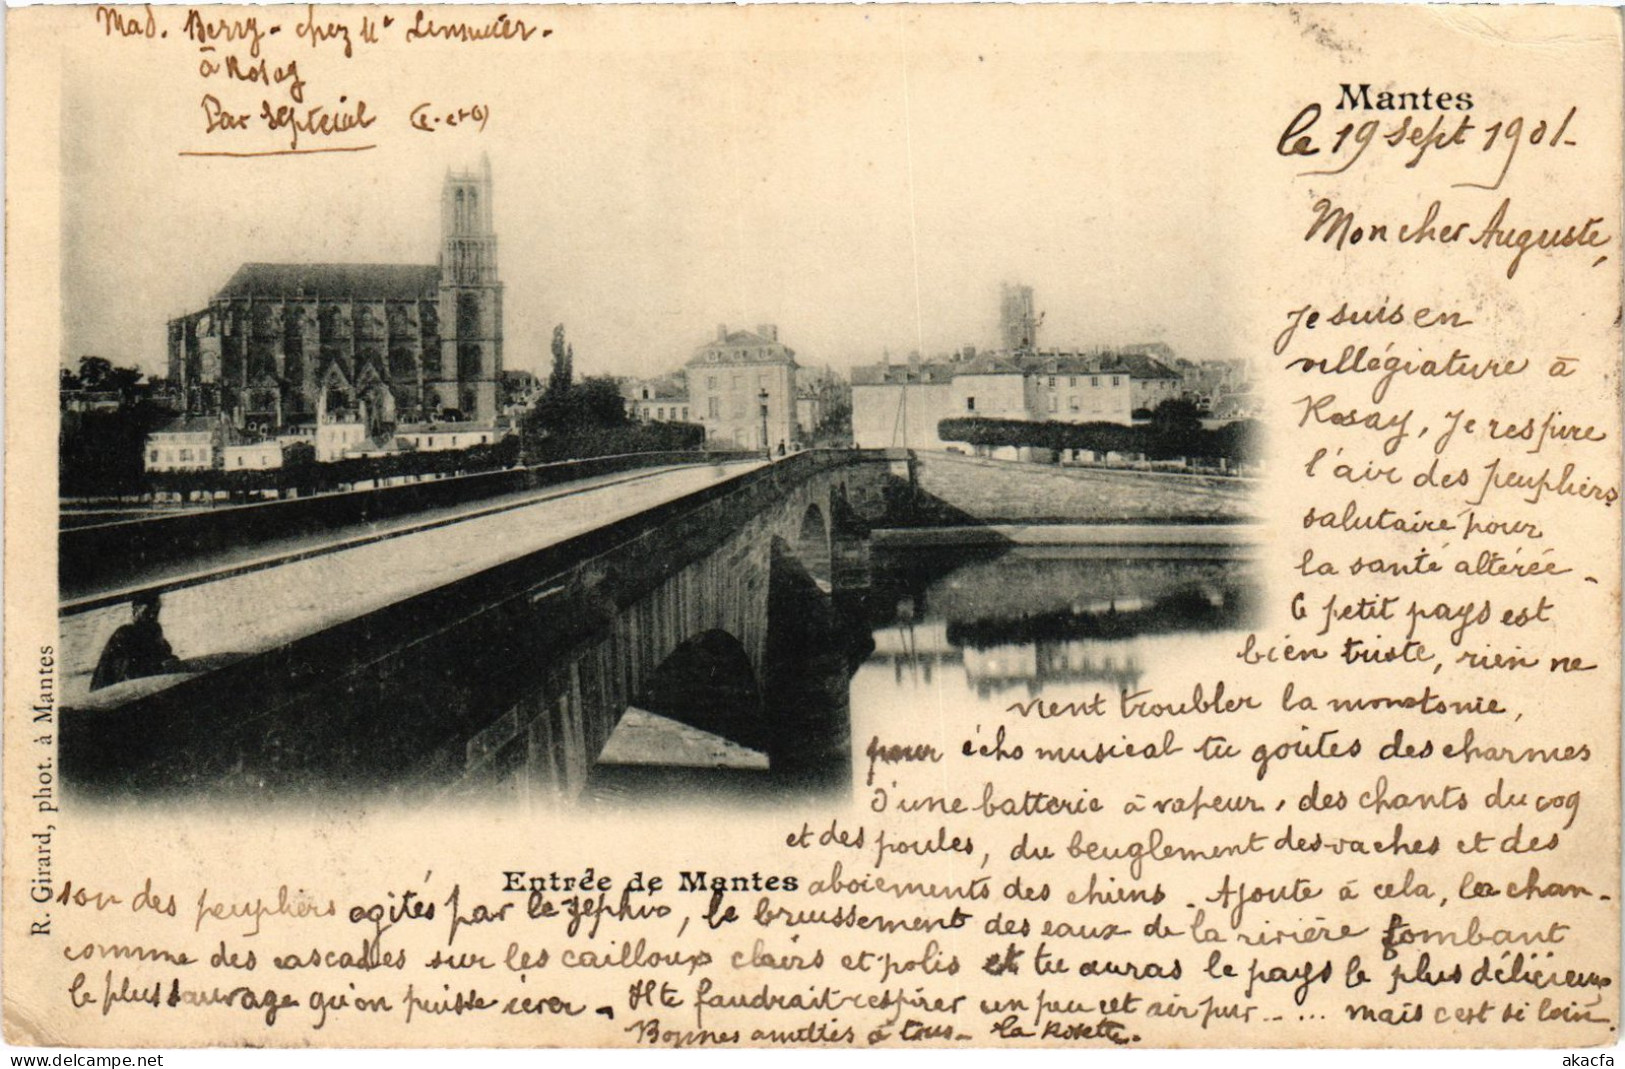 Mad. Berry - chez Mr
à Rosay
Par Septeuil (S-et-O)
Mantes
le 19 sept 1901-
Mon cher Auguste,
Je suis en
villégiature à
Rosay, Je respire
l'air des peupliers
salutaire pour
la santé altérée -
Ce petit pays est
bien triste, rien ne
vient troubler la monotonie,
pour écho musical tu goûtes des charmes
d'une batterie à vapeur, des chants du coq
et des poules, du beuglement des vaches et des
Entrée de Mantes
aboiements des chiens. Ajoute à cela, la chan-
son des peupliers agités par le zéphir, le bruissement des eaux de la rivière tombant
comme des cascades sur les cailloux clairs et polis et tu auras le pays le plus délicieux,
le plus sauvage qu'on puisse rêver - Il te faudrait respirer un peu cet air pur ..... mais c'est si loin.
Bonnes amitiés à tous - la Rosette.
R. Girard, phot. à Mantes
akacfa